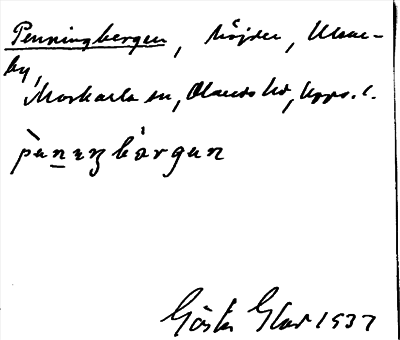 Penningbergen, höjder, Ulvar-
by,
Morkarla sn, Olands hd, Upps. l.
pènıŋbàrgɐn
Gösta Glar 1937